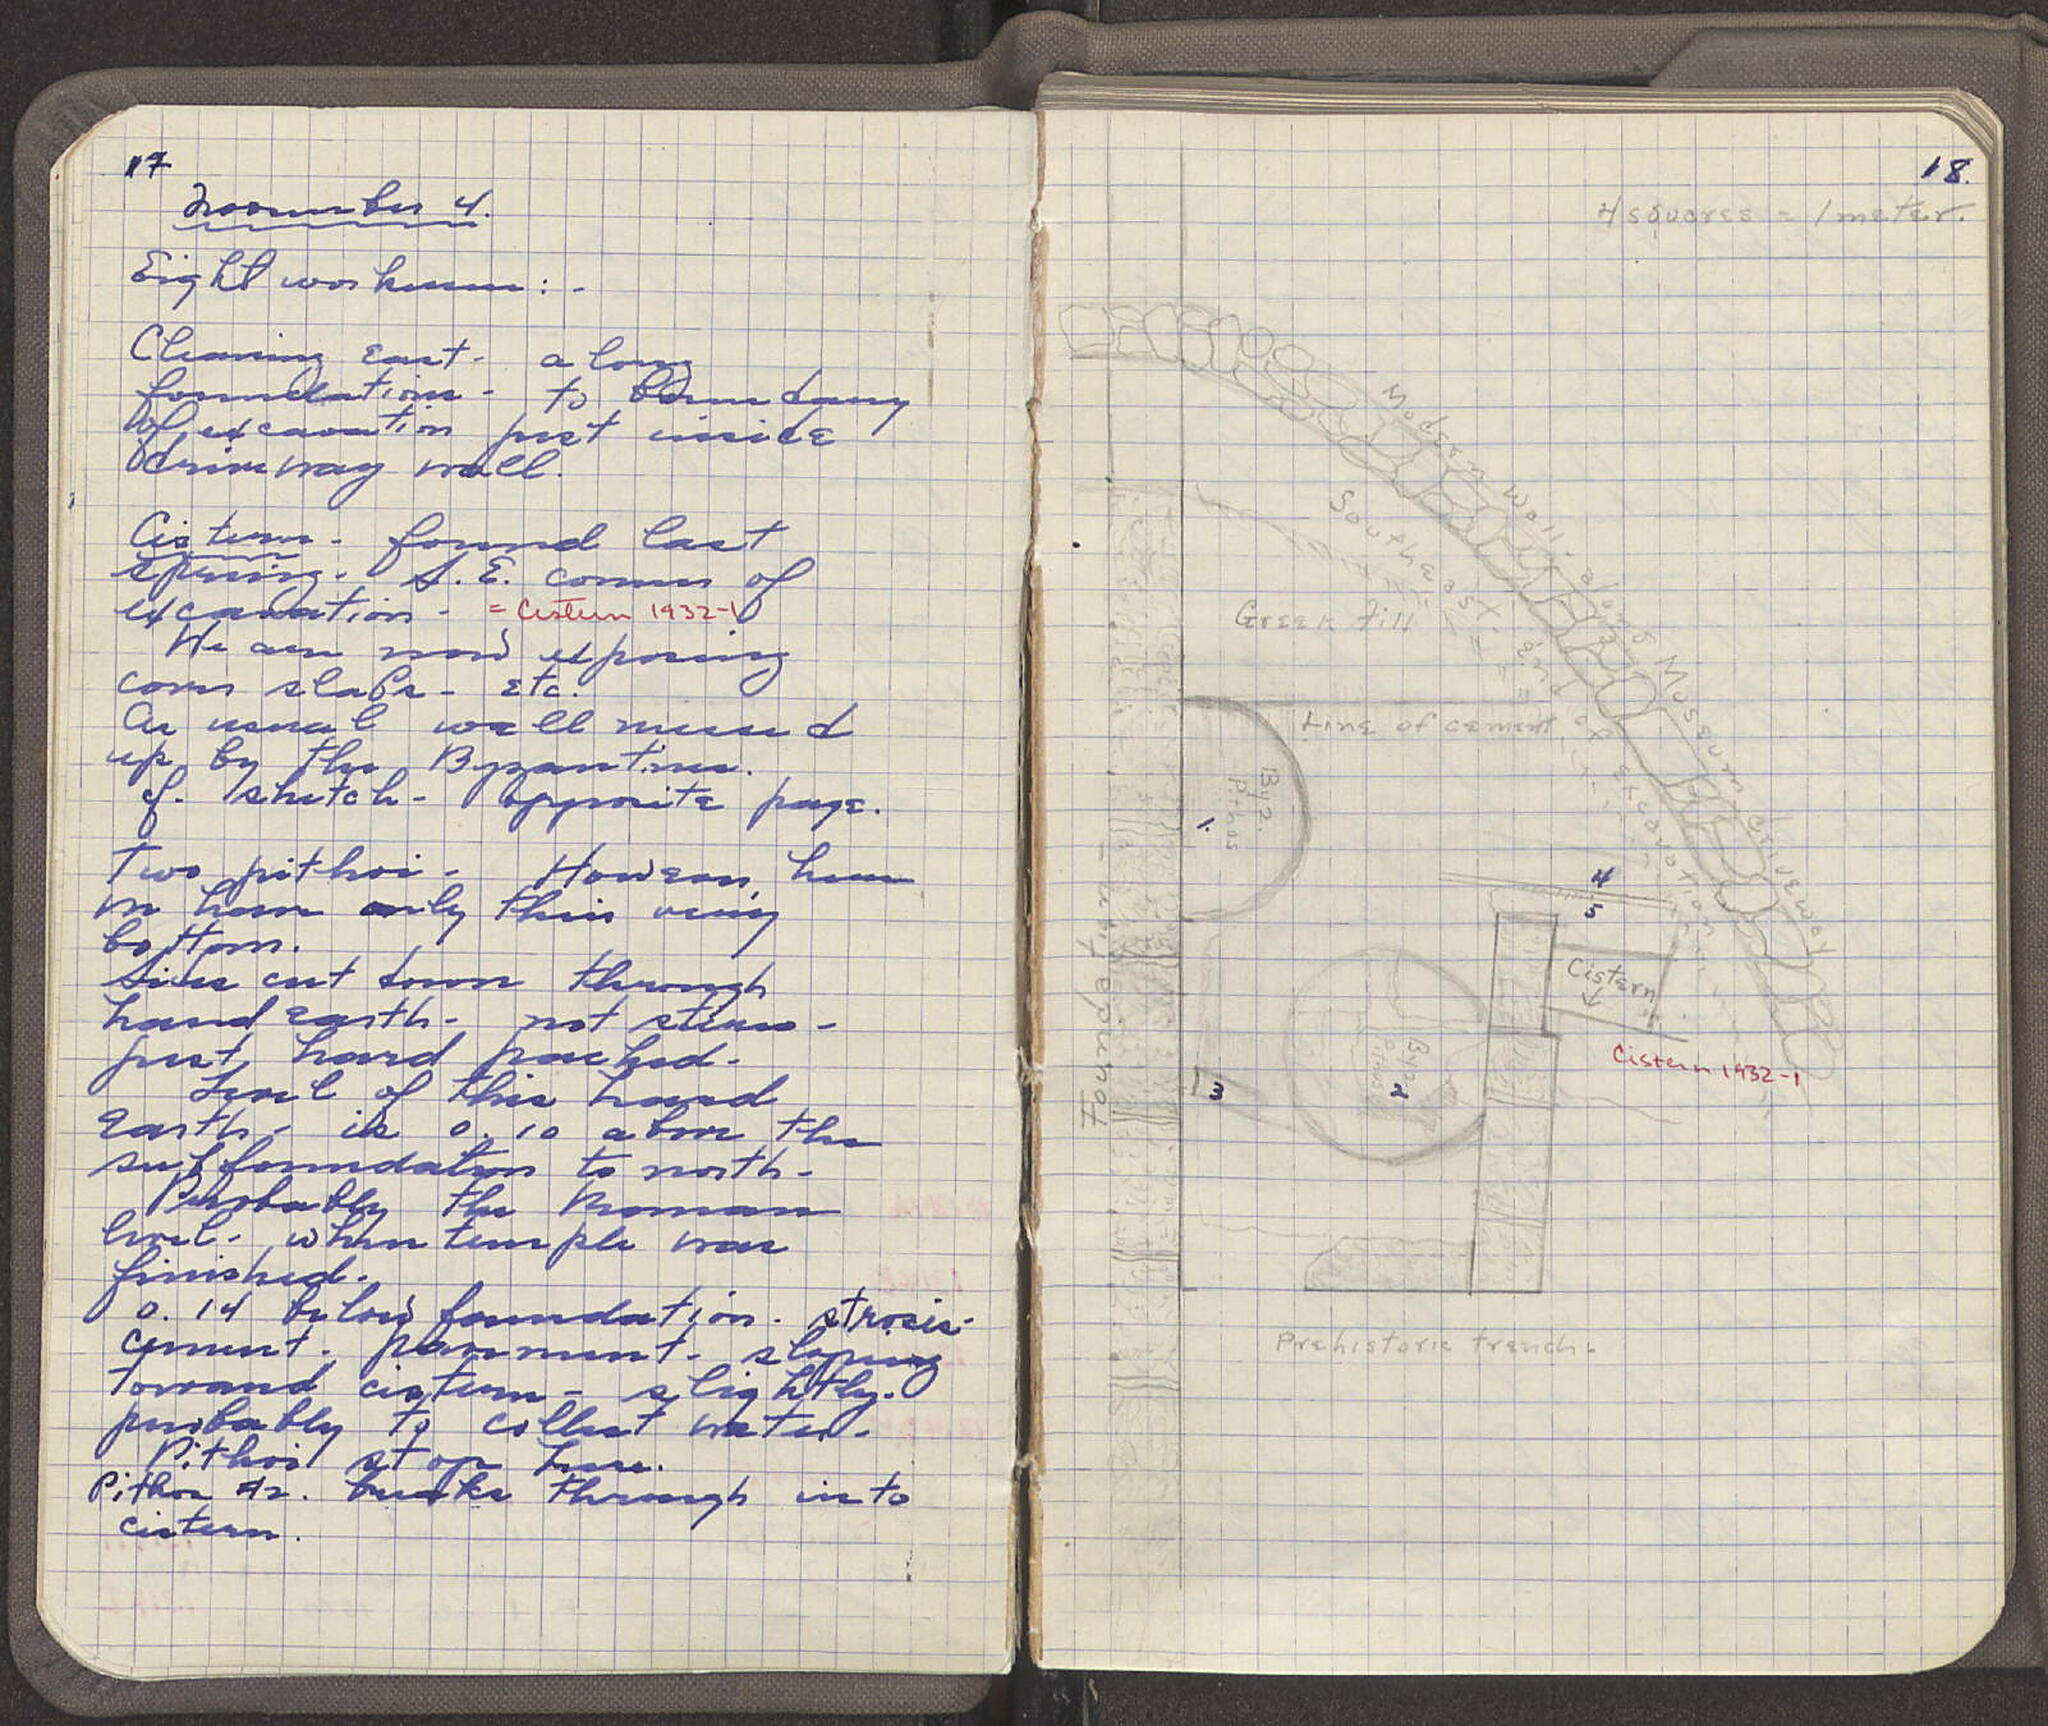 17
November 4.
Eight workmen: -
Clearing East - along
foundations - to boundary
of excavation just inside
driveway wall.
Cistern - found last
spring - S.E. corner of
excavation - = Cistern 1932-1
We are now exposing
cover slabs - etc.
As usual well messed
up by the Byzantines.
cf. sketch - opposite page.
Two pithoi - However, here
we have only their very
bottom.
Sides cut down through
hard earth - not stereo -
just hard packed -
Level of this hard
earth - is 0.10 above the
subfoundation to north -
Probably the Roman
level - when temple was
finished -
0.14 below foundation - strosis -
cement - pavement - sloping
toward cistern - slightly -
probably to collect water -
Pithoi stop here.
Pithos #2. breaks through into
cistern.
18.
4 squares = 1 meter.
Modern wall - along Museum driveway
Southeast edge of excavation
Greek fill
Line of cement
Byz. Pithos
1.
4
5
Cistern
Cistern 1932-1
Foundation
3
Byz. Pithos
2
Prehistoric trench -